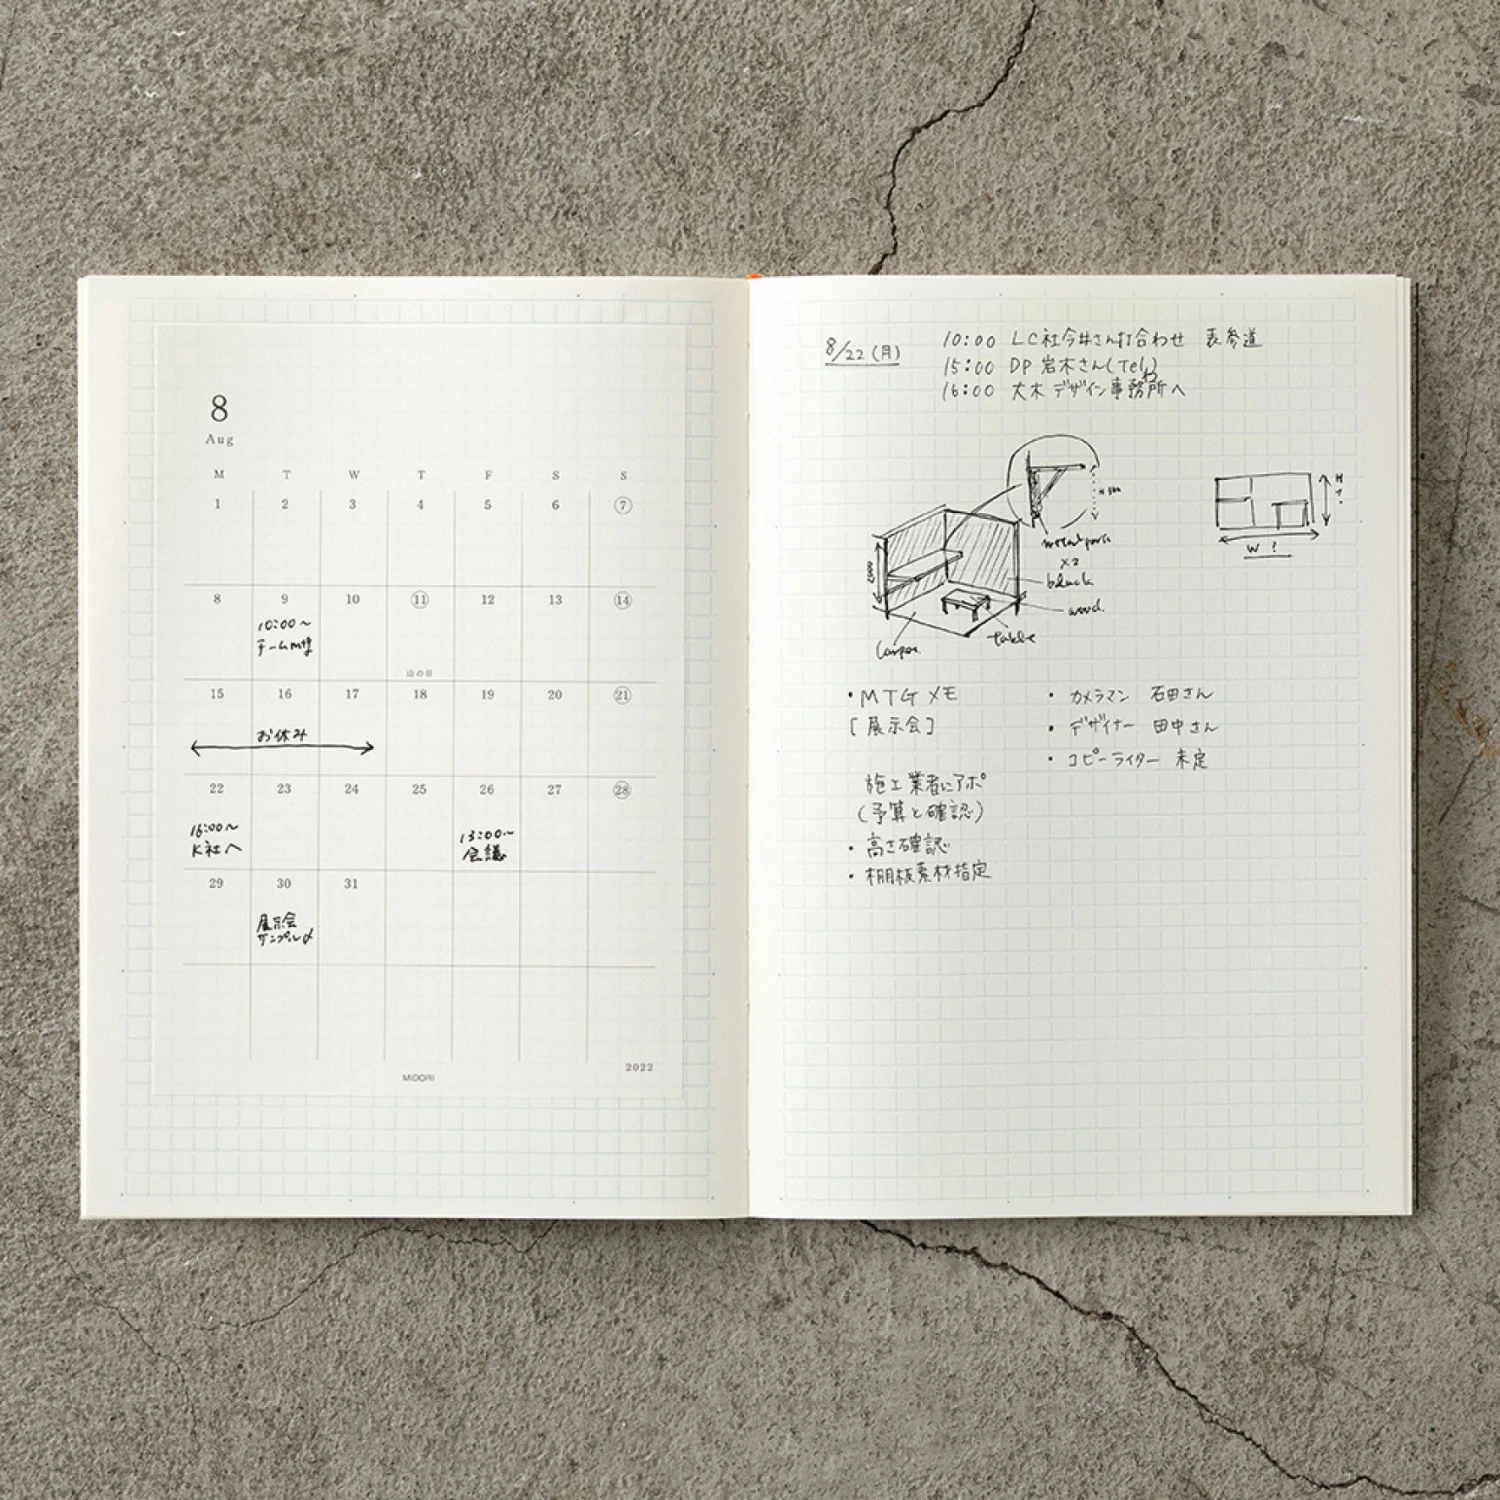 8
Aug
M T W T F S S
1 2 3 4 5 6 7
8 9 10 11 12 13 14
10:00〜
チームmtg
山の日
15 16 17 18 19 20 21
お休み
22 23 24 25 26 27 28
16:00〜
K社へ
13:00〜
会議
29 30 31
展示会
サンプル〆
MIDORI
2022
8/22(月)
10:00 LC社今井さん打合わせ 表参道
15:00 DP 岩木さん(Tel)
16:00 大木デザイン事務所へ
metal parts
×2
black
wood.
table
H?
W?
・MTGメモ
[展示会]
施工業者にアポ
(予算と確認)
・高さ確認
・棚板素材指定
・カメラマン 石田さん
・デザイナー 田中さん
・コピーライター 未定